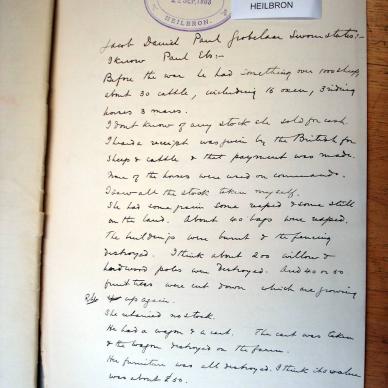 22 SEP. 1903
HEILBRON.
HEILBRON
Jacob Daniel Paul Grobelaar Sworn states:-
I know Paul Els:-
Before the war he had something over 1000 sheep,
about 30 cattle, including 16 oxen, 3 riding
horses 3 mares.
I dont know of any stock she sold for cash.
I heard a receipt was given by the British for
sheep & cattle & that payment was made.
None of the horses were used on commando.
I saw all the stock taken myself.
She had some grain some reaped & some still
on the land. About 40 bags were reaped.
The buildings were burnt & the fencing
destroyed. I think about 200 willow &
hardwood poles were destroyed. And 40 or 50
fruit trees were cut down which are growing
up again.
She retained no stock.
He had a wagon & a cart. The cart was taken
& the wagon destroyed on the farm.
Her furniture was all destroyed. I think its value
was about £50.